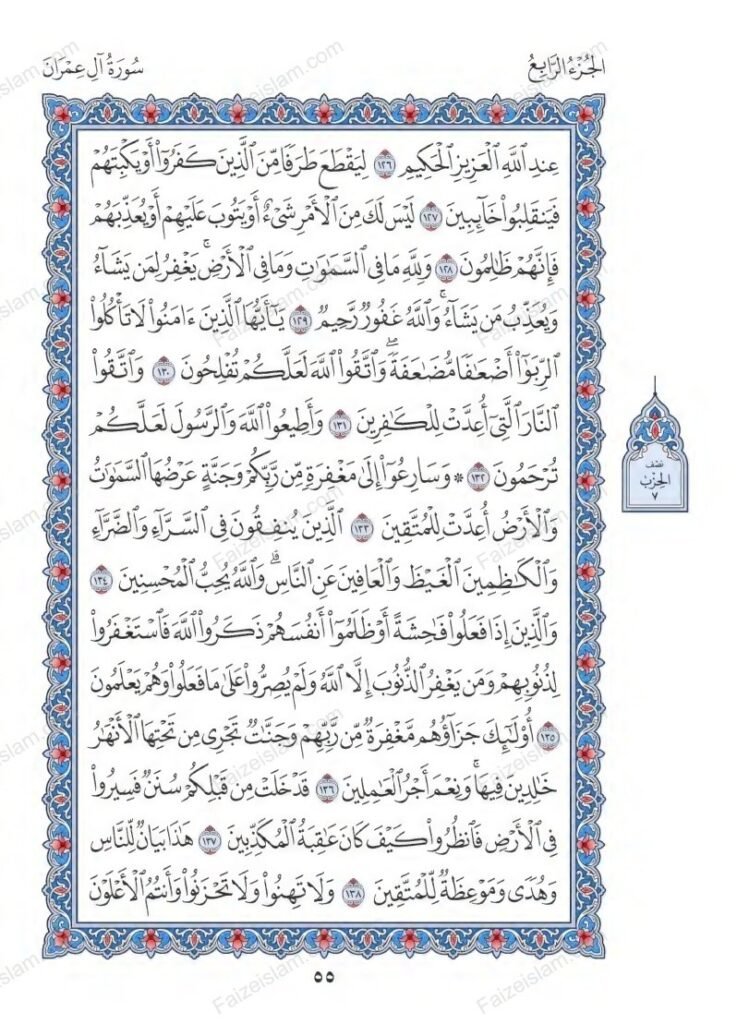 الجُزْءُ الرَّابِعُ
سُورَةُ آلِ عِمْرَانَ
عِندِ اللَّهِ الْعَزِيزِ الْحَكِيمِ ١٢٦ لِيَقْطَعَ طَرَفًا مِّنَ الَّذِينَ كَفَرُوا أَوْ يَكْبِتَهُمْ
فَيَنقَلِبُوا خَائِبِينَ ١٢٧ لَيْسَ لَكَ مِنَ الْأَمْرِ شَيْءٌ أَوْ يَتُوبَ عَلَيْهِمْ أَوْ يُعَذِّبَهُمْ
فَإِنَّهُمْ ظَالِمُونَ ١٢٨ وَلِلَّهِ مَا فِي السَّمَاوَاتِ وَمَا فِي الْأَرْضِ ۚ يَغْفِرُ لِمَن يَشَاءُ
وَيُعَذِّبُ مَن يَشَاءُ ۚ وَاللَّهُ غَفُورٌ رَّحِيمٌ ١٢٩ يَٰأَيُّهَا الَّذِينَ ءَامَنُوا لَا تَأْكُلُوا
الرِّبَوٰا أَضْعَٰفًا مُّضَٰعَفَةً ۖ وَاتَّقُوا اللَّهَ لَعَلَّكُمْ تُفْلِحُونَ ١٣٠ وَاتَّقُوا
النَّارَ الَّتِي أُعِدَّتْ لِلْكَافِرِينَ ١٣١ وَأَطِيعُوا اللَّهَ وَالرَّسُولَ لَعَلَّكُمْ
تُرْحَمُونَ ١٣٢ * وَسَارِعُوا إِلَىٰ مَغْفِرَةٍ مِّن رَّبِّكُمْ وَجَنَّةٍ عَرْضُهَا السَّمَاوَاتُ
وَالْأَرْضُ أُعِدَّتْ لِلْمُتَّقِينَ ١٣٣ الَّذِينَ يُنفِقُونَ فِي السَّرَّاءِ وَالضَّرَّاءِ
وَالْكَٰظِمِينَ الْغَيْظَ وَالْعَافِينَ عَنِ النَّاسِ ۗ وَاللَّهُ يُحِبُّ الْمُحْسِنِينَ ١٣٤
وَالَّذِينَ إِذَا فَعَلُوا فَاحِشَةً أَوْ ظَلَمُوا أَنفُسَهُمْ ذَكَرُوا اللَّهَ فَاسْتَغْفَرُوا
لِذُنُوبِهِمْ وَمَن يَغْفِرُ الذُّنُوبَ إِلَّا اللَّهُ وَلَمْ يُصِرُّوا عَلَىٰ مَا فَعَلُوا وَهُمْ يَعْلَمُونَ
١٣٥ أُولَٰئِكَ جَزَاؤُهُم مَّغْفِرَةٌ مِّن رَّبِّهِمْ وَجَنَّاتٌ تَجْرِي مِن تَحْتِهَا الْأَنْهَارُ
خَالِدِينَ فِيهَا ۚ وَنِعْمَ أَجْرُ الْعَامِلِينَ ١٣٦ قَدْ خَلَتْ مِن قَبْلِكُمْ سُنَنٌ فَسِيرُوا
فِي الْأَرْضِ فَانظُرُوا كَيْفَ كَانَ عَاقِبَةُ الْمُكَذِّبِينَ ١٣٧ هَٰذَا بَيَانٌ لِّلنَّاسِ
وَهُدًى وَمَوْعِظَةٌ لِّلْمُتَّقِينَ ١٣٨ وَلَا تَهِنُوا وَلَا تَحْزَنُوا وَأَنتُمُ الْأَعْلَوْنَ
نصف
الحزب
٧
٥٥
Faizeislam.com